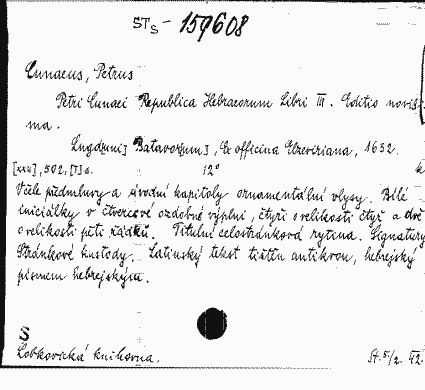 STS - 159608
Cunaeus, Petrus
Petri Cunaei Republica Hebraeorum Libri III. Editio novissi-
ma.
Lugd[uni] Batavorum], Ex officina Elzeviriana, 1632.
[XXII], 502, [7] s. 12°
Včele předmluvy a úvodní kapitoly ornamentální vlysy. Bílé
iniciálky v čtvercové ozdobné výplni, čtyři o velikosti čtyř a dvě
o velikosti pěti řádků. Titulní celostránková rytina. Signatury
Stránkové kustody. Latinský tekst tištěn antikvou, hebrejský
písmem hebrejským.
S
Lobkovická knihovna.